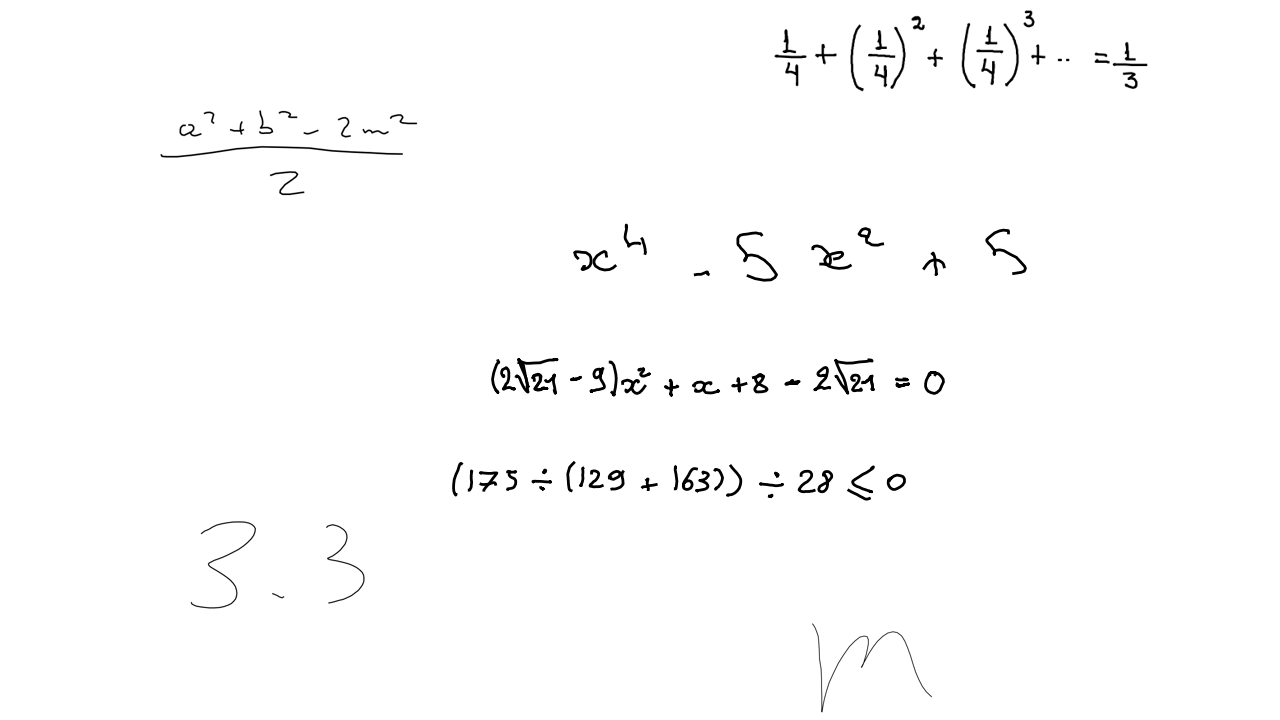 1/4 + (1/4)² + (1/4)³ + .. = 1/3
(a² + b² - 2m²)/2
x⁴ - 5x² + 5
(2√21 - 9)x² + x + 8 - 2√21 = 0
(175 ÷ (129 + 163)) ÷ 28 ≤ 0
3.3
m